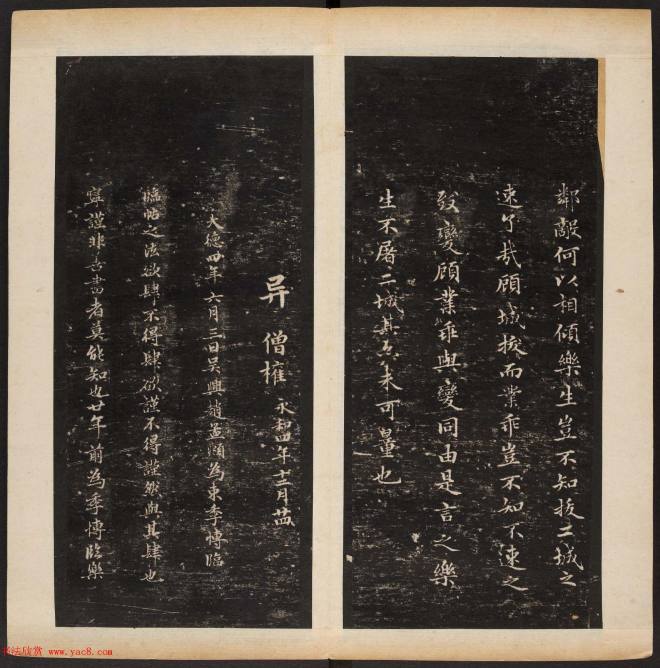 鄰敵何以相傾樂生豈不知拔二城之
速了哉顧城拔而業乖豈不知不速之
致變顧業乖與變同由是言之樂
生不屠二城其亦未可量也
异 僧權 永和四年十二月廿四
大德四年六月三日吳興趙孟頫為東季博臨
臨帖之法欲肆不得肆欲謹不得謹然與其肆也
寧謹非善書者莫能知也廿年前為季博臨樂
书法欣赏 www.yac8.com